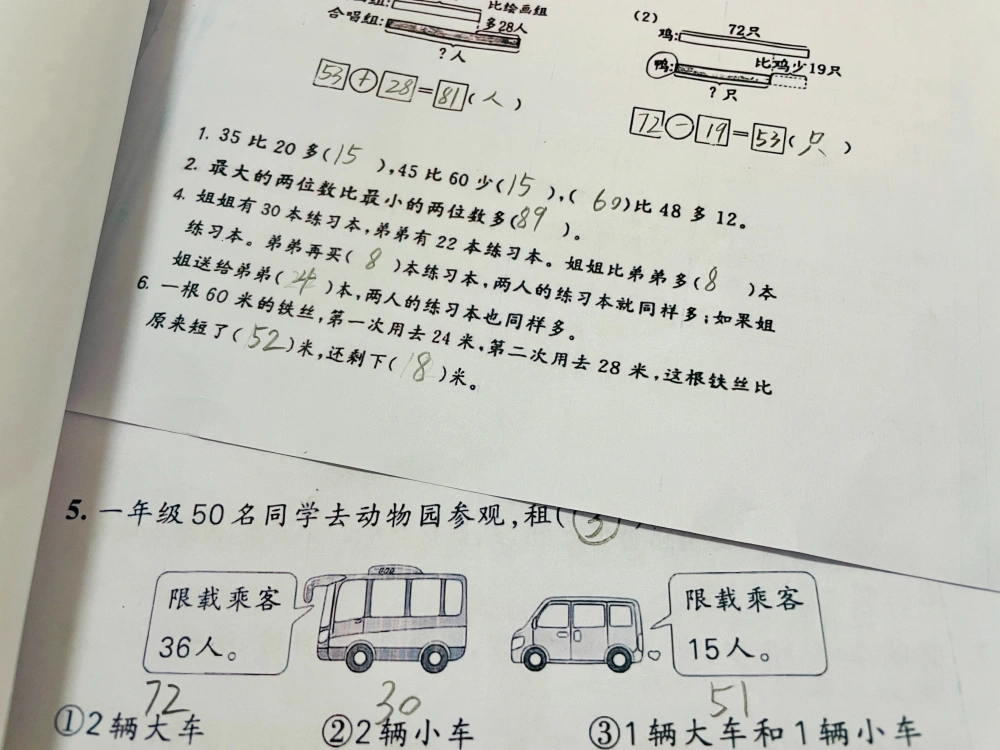 比绘画组
合唱组:
多28人
?人
53+28=81(人)
(2)
72只
鸡:
鸭:
比鸡少19只
?只
72-19=53(只)
1. 35比20多(15),45比60少(15),(60)比48多12。
2. 最大的两位数比最小的两位数多(89)。
4. 姐姐有30本练习本,弟弟有22本练习本。姐姐比弟弟多(8)本
练习本。弟弟再买(8)本练习本,两人的练习本就同样多;如果姐
姐送给弟弟(4)本,两人的练习本也同样多。
6. 一根60米的铁丝,第一次用去24米,第二次用去28米,这根铁丝比
原来短了(52)米,还剩下(18)米。
5. 一年级50名同学去动物园参观,租(③)
限载乘客
36人。
限载乘客
15人。
72
30
51
①2辆大车
②2辆小车
③1辆大车和1辆小车